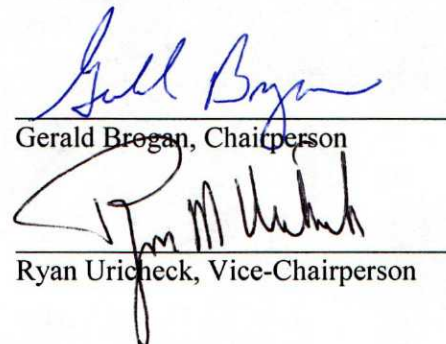 Gerald Brogan
Gerald Brogan, Chairperson
Ryan M Uricheck
Ryan Uricheck, Vice-Chairperson